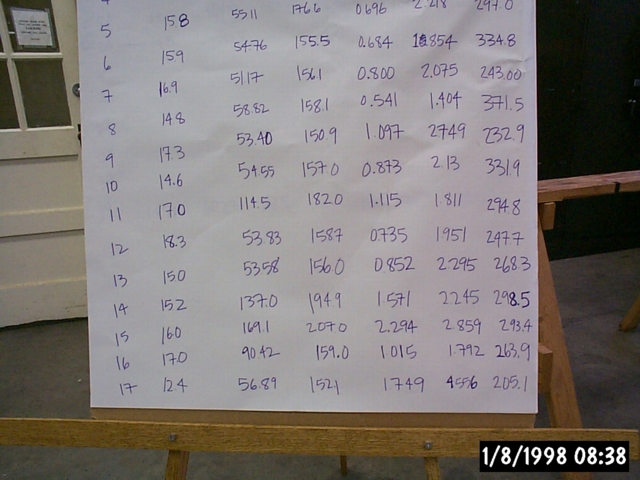 5 15.8 55.11 176.6 0.696 2.218 297.0
6 15.9 54.76 155.5 0.684 1.854 334.8
7 16.9 51.17 156.1 0.800 2.075 243.00
8 14.8 58.82 158.1 0.541 1.404 371.5
9 17.3 53.40 150.9 1.097 2.749 232.9
10 14.6 54.55 157.0 0.873 2.13 331.9
11 17.0 114.5 182.0 1.115 1.811 294.8
12 18.3 53.83 158.7 0.735 1.951 247.7
13 15.0 53.58 156.0 0.852 2.295 268.3
14 15.2 137.0 194.9 1.571 2.245 298.5
15 16.0 169.1 207.0 2.294 2.859 293.4
16 17.0 90.42 159.0 1.015 1.792 263.9
17 12.4 56.89 152.1 1.749 4.556 205.1
1/8/1998 08:38